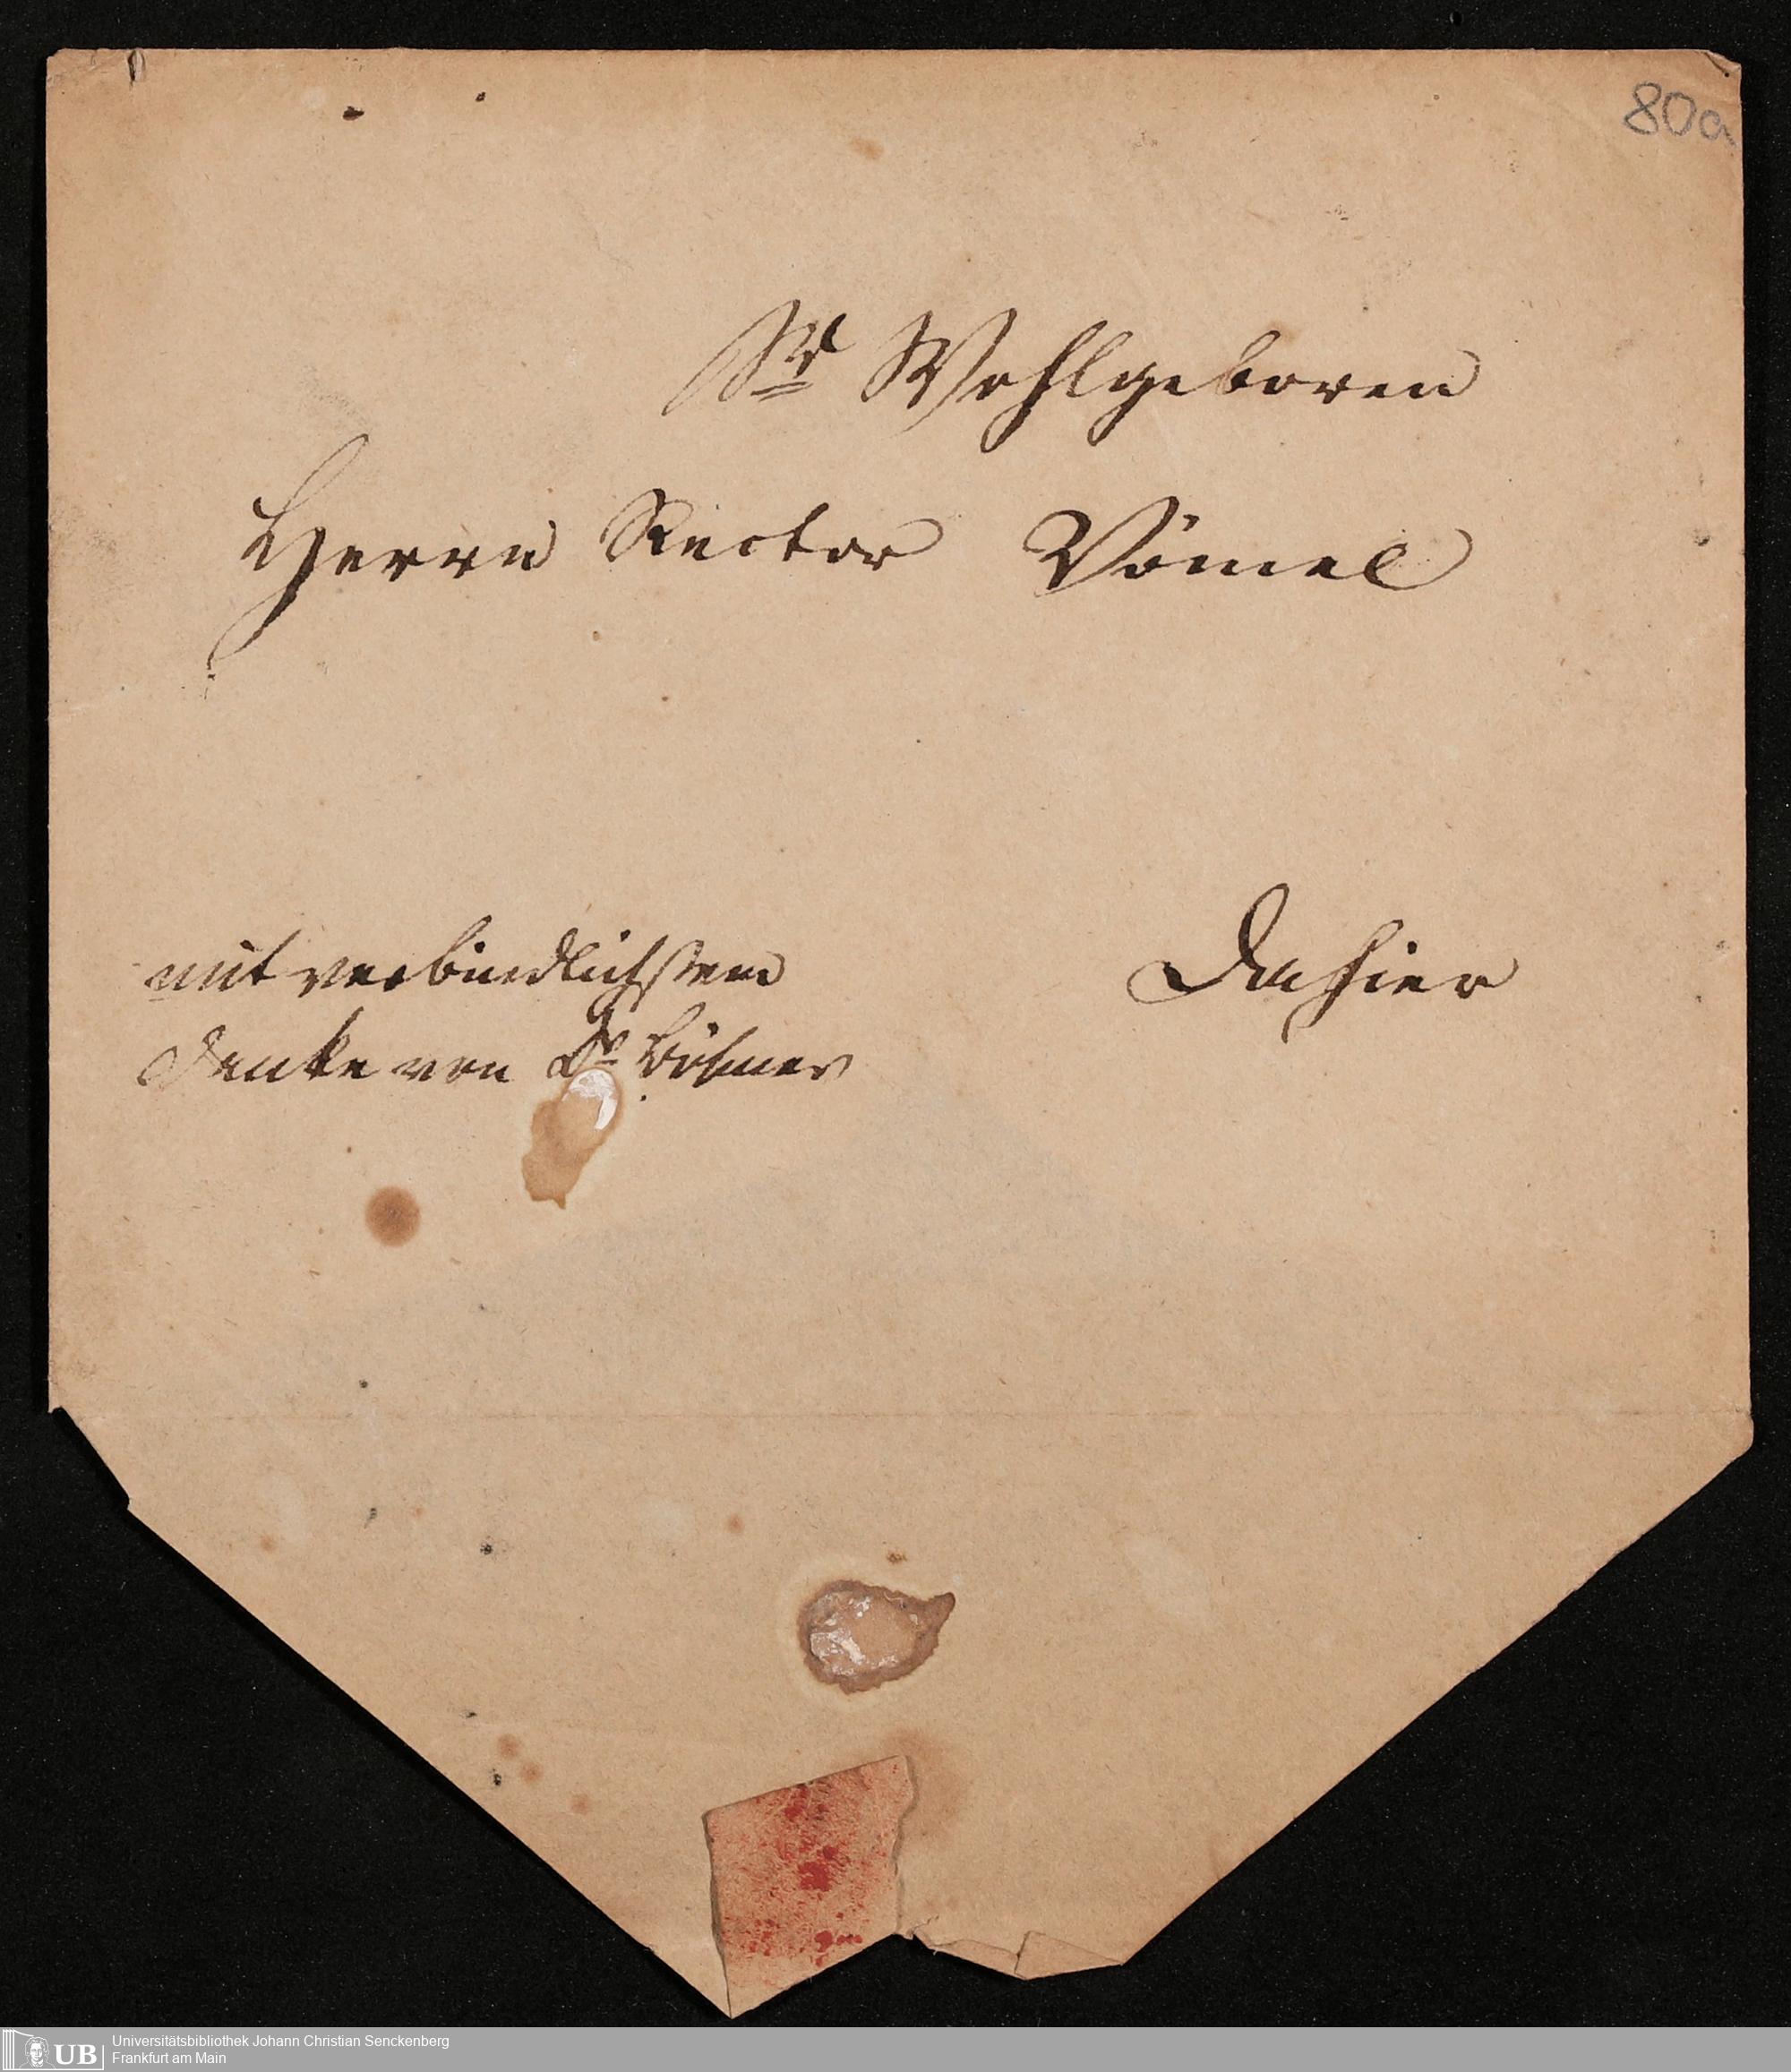 80a
Sr Wohlgeboren
Herrn Rector Vömel
mit verbindlichstem
Danke von Dr Böhmer
Dahier
UB
Universitätsbibliothek Johann Christian Senckenberg
Frankfurt am Main